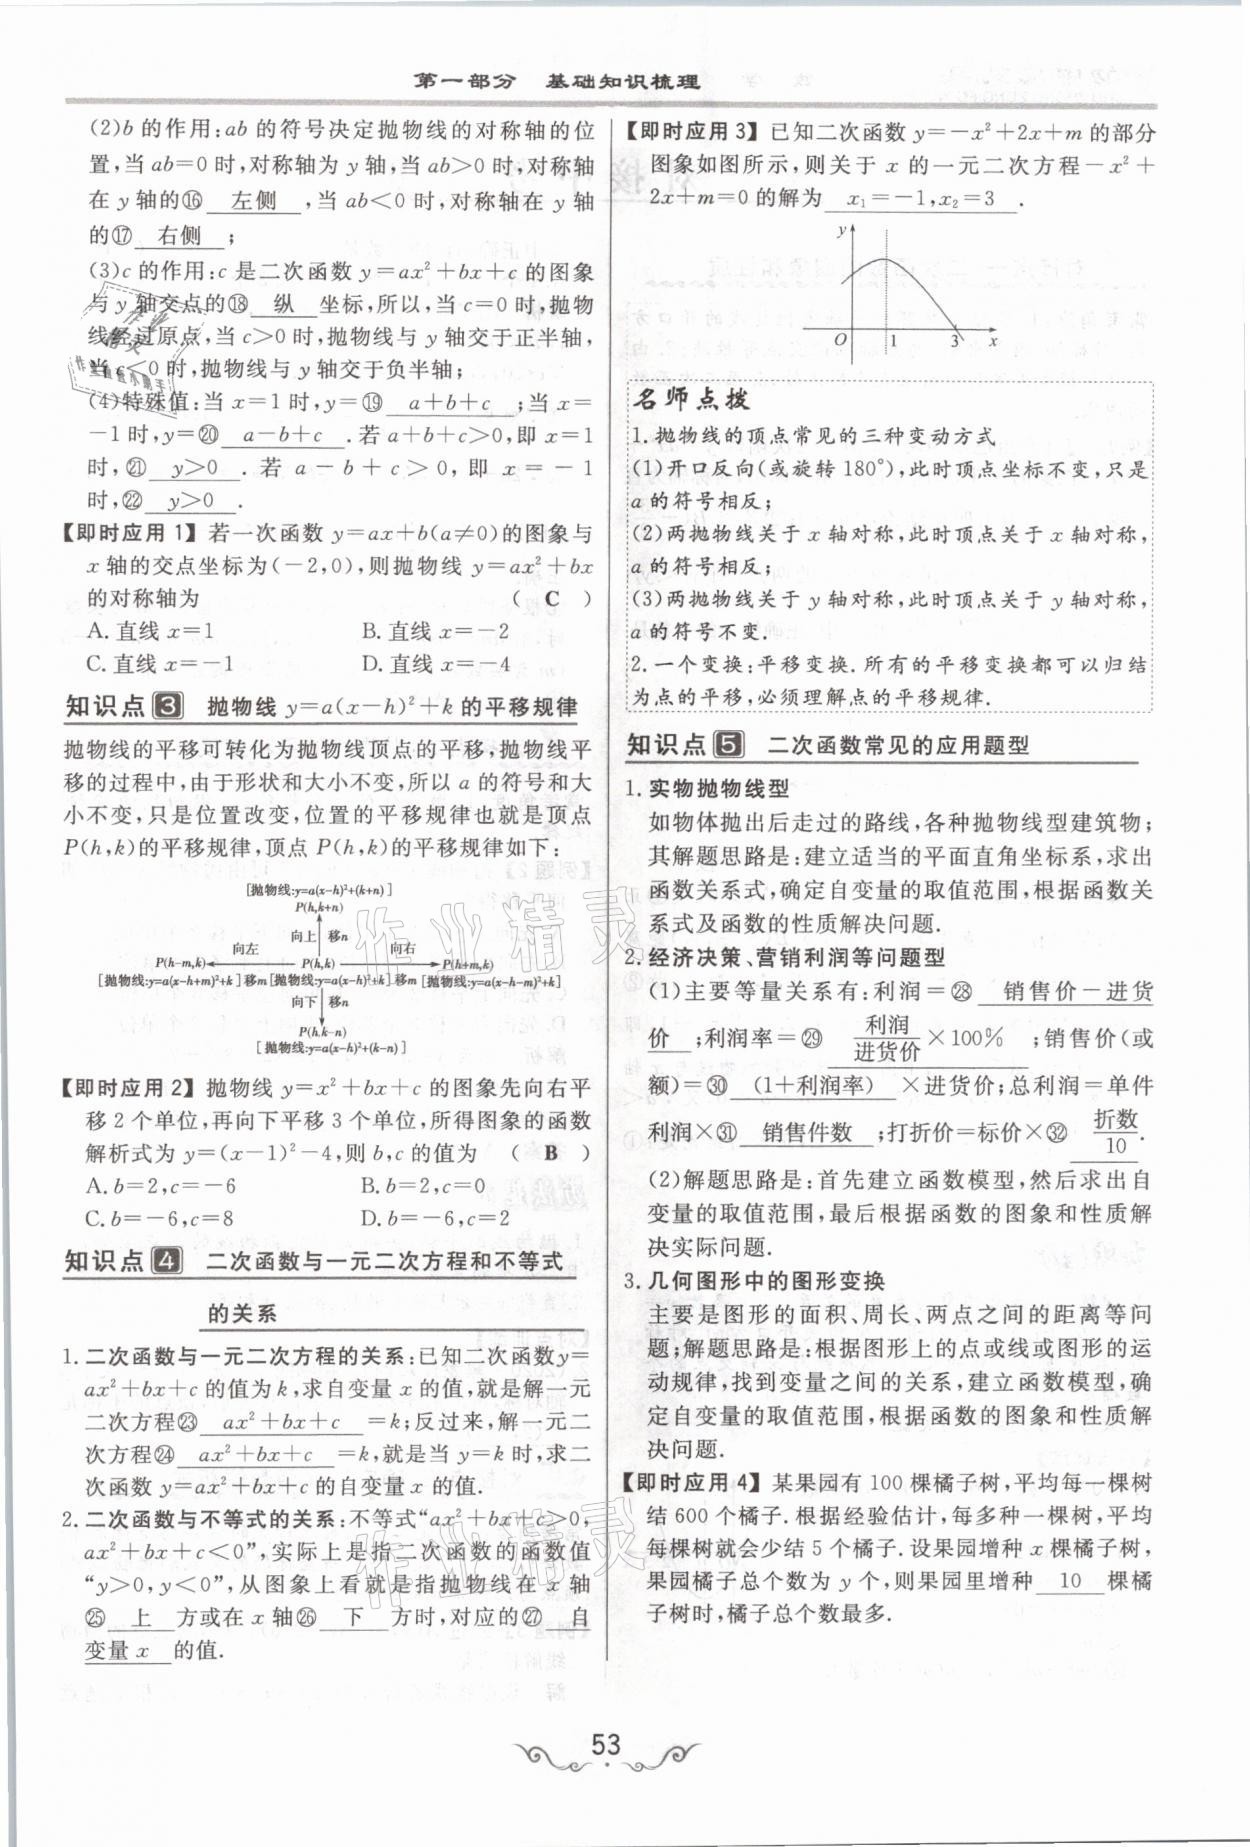 第一部分　基础知识梳理
(2)b 的作用:ab 的符号决定抛物线的对称轴的位
置,当 ab=0 时,对称轴为 y 轴,当 ab>0 时,对称轴
在 y 轴的⑯ 左侧 ,当 ab<0 时,对称轴在 y 轴
的⑰ 右侧 ;
(3)c 的作用:c 是二次函数 y=ax²+bx+c 的图象
与 y 轴交点的⑱ 纵 坐标,所以,当 c=0 时,抛物
线经过原点,当 c>0 时,抛物线与 y 轴交于正半轴,
当 c<0 时,抛物线与 y 轴交于负半轴;
(4)特殊值:当 x=1 时,y=⑲ a+b+c ;当 x=
-1 时,y=⑳ a-b+c .若 a+b+c>0,即 x=1
时,㉑ y>0 .若 a-b+c>0,即 x=-1
时,㉒ y>0 .
【即时应用 1】 若一次函数 y=ax+b(a≠0)的图象与
x 轴的交点坐标为(-2,0),则抛物线 y=ax²+bx
的对称轴为 ( C )
A. 直线 x=1 B. 直线 x=-2
C. 直线 x=-1 D. 直线 x=-4
知识点 3 抛物线 y=a(x-h)²+k 的平移规律
抛物线的平移可转化为抛物线顶点的平移,抛物线平
移的过程中,由于形状和大小不变,所以 a 的符号和大
小不变,只是位置改变,位置的平移规律也就是顶点
P(h,k)的平移规律,顶点 P(h,k)的平移规律如下:
[抛物线:y=a(x-h)²+(k+n)]
P(h,k+n)
向上 移n
向左 向右
P(h-m,k) P(h,k) P(h+m,k)
[抛物线:y=a(x-h+m)²+k] 移m [抛物线:y=a(x-h)²+k] 移m [抛物线:y=a(x-h-m)²+k]
向下 移n
P(h,k-n)
[抛物线:y=a(x-h)²+(k-n)]
【即时应用 2】 抛物线 y=x²+bx+c 的图象先向右平
移 2 个单位,再向下平移 3 个单位,所得图象的函数
解析式为 y=(x-1)²-4,则 b,c 的值为 ( B )
A. b=2,c=-6 B. b=2,c=0
C. b=-6,c=8 D. b=-6,c=2
知识点 4 二次函数与一元二次方程和不等式
的关系
1. 二次函数与一元二次方程的关系:已知二次函数 y=
ax²+bx+c 的值为 k,求自变量 x 的值,就是解一元
二次方程㉓ ax²+bx+c =k;反过来,解一元二
次方程㉔ ax²+bx+c =k,就是当 y=k 时,求二
次函数 y=ax²+bx+c 的自变量 x 的值.
2. 二次函数与不等式的关系:不等式“ax²+bx+c>0,
ax²+bx+c<0”,实际上是指二次函数的函数值
“y>0,y<0”,从图象上看就是指抛物线在 x 轴
㉕ 上 方或在 x 轴㉖ 下 方时,对应的㉗ 自
变量 x 的值.
【即时应用 3】 已知二次函数 y=-x²+2x+m 的部分
图象如图所示,则关于 x 的一元二次方程-x²+
2x+m=0 的解为 x₁=-1,x₂=3 .
y
O 1 3 x
名师点拨
1. 抛物线的顶点常见的三种变动方式
(1)开口反向(或旋转 180°),此时顶点坐标不变,只是
a 的符号相反;
(2)两抛物线关于 x 轴对称,此时顶点关于 x 轴对称,
a 的符号相反;
(3)两抛物线关于 y 轴对称,此时顶点关于 y 轴对称,
a 的符号不变.
2. 一个变换:平移变换. 所有的平移变换都可以归结
为点的平移,必须理解点的平移规律.
知识点 5 二次函数常见的应用题型
1. 实物抛物线型
如物体抛出后走过的路线,各种抛物线型建筑物;
其解题思路是:建立适当的平面直角坐标系,求出
函数关系式,确定自变量的取值范围,根据函数关
系式及函数的性质解决问题.
2. 经济决策、营销利润等问题型
(1)主要等量关系有:利润=㉘ 销售价-进货
价 ;利润率=㉙ 利润/进货价×100% ;销售价(或
额)=㉚ (1+利润率) ×进货价;总利润=单件
利润×㉛ 销售件数 ;打折价=标价×㉜ 折数/10 .
(2)解题思路是:首先建立函数模型,然后求出自
变量的取值范围,最后根据函数的图象和性质解
决实际问题.
3. 几何图形中的图形变换
主要是图形的面积、周长、两点之间的距离等问
题;解题思路是:根据图形上的点或线或图形的运
动规律,找到变量之间的关系,建立函数模型,确
定自变量的取值范围,根据函数的图象和性质解
决问题.
【即时应用 4】 某果园有 100 棵橘子树,平均每一棵树
结 600 个橘子. 根据经验估计,每多种一棵树,平均
每棵树就会少结 5 个橘子. 设果园增种 x 棵橘子树,
果园橘子总个数为 y 个,则果园里增种 10 棵橘
子树时,橘子总个数最多.
53
作业精灵
作业精灵